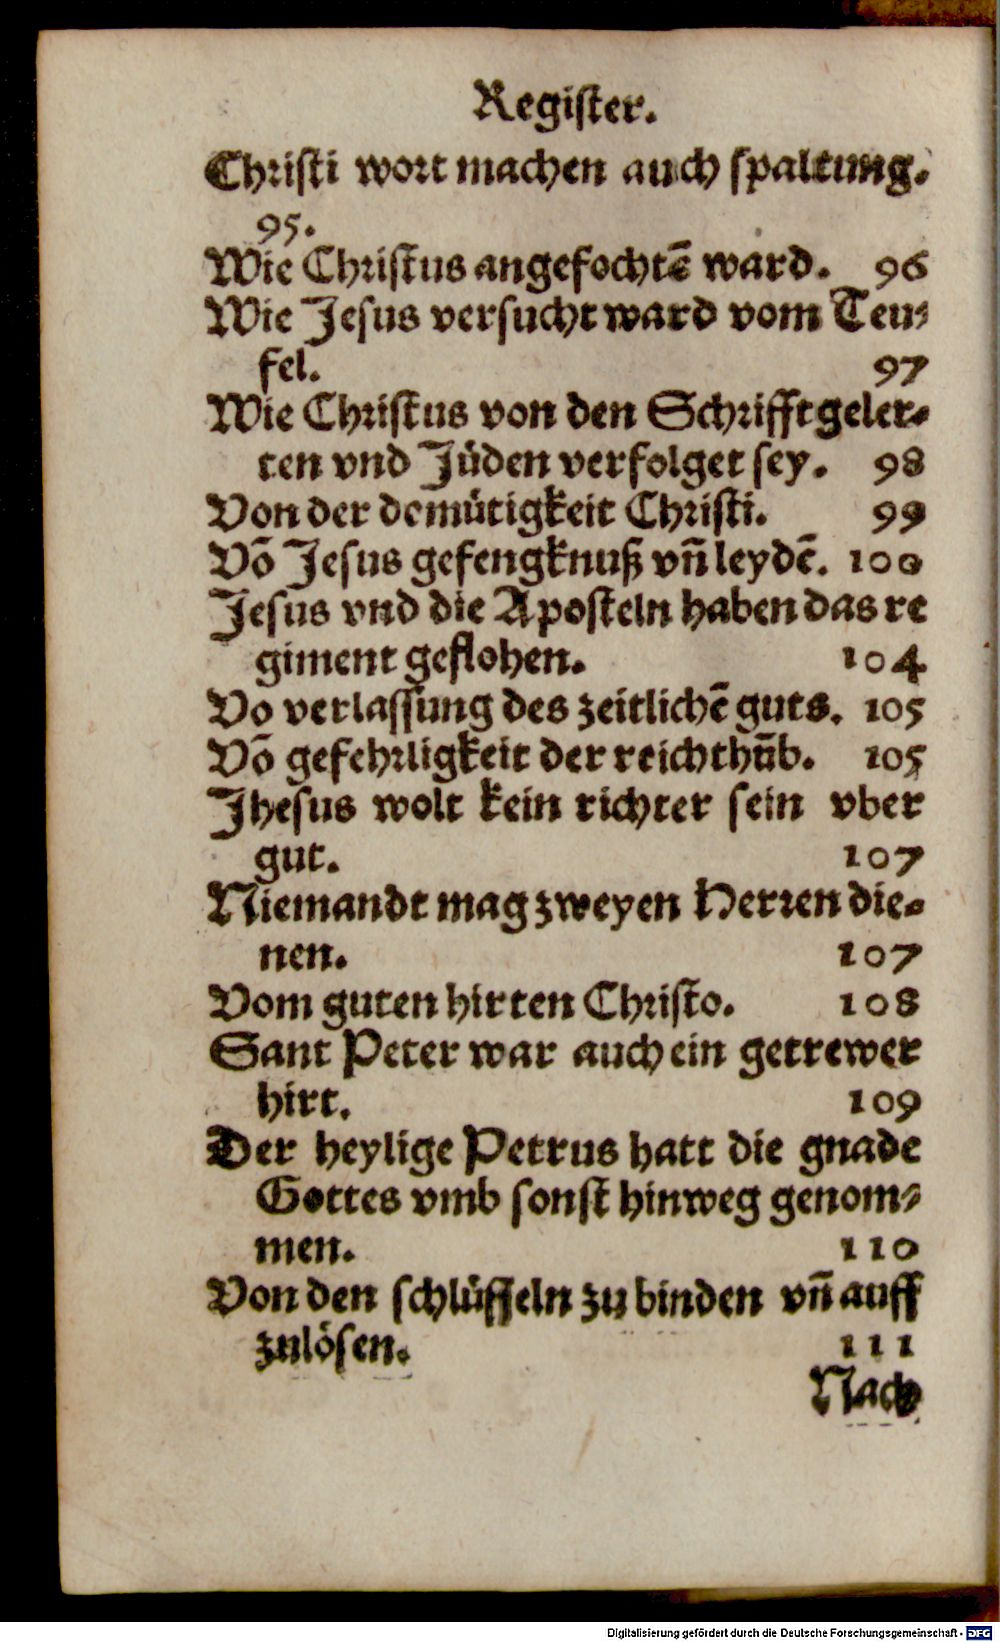 Register.
Christi wort machen auch spaltung.
95.
Wie Christus angefochtē ward. 96
Wie Jesus versucht ward vom Teu⸗
fel. 97
Wie Christus von den Schrifftgeler⸗
ten vnd Jüden verfolget sey. 98
Von der demütigkeit Christi. 99
Vō Jesus gefengknuß vn̄ leydē. 100
Jesus vnd die Aposteln haben das re
giment geflohen. 104
Vō verlassung des zeitlichē guts. 105
Vō gefehrligkeit der reichthūb. 105
Jhesus wolt kein richter sein vber
gut. 107
Niemandt mag zweyen Herren die⸗
nen. 107
Vom guten hirten Christo. 108
Sant Peter war auch ein getrewer
hirt. 109
Der heylige Petrus hatt die gnade
Gottes vmb sonst hinweg genom⸗
men. 110
Von den schlüsseln zu binden vn̄ auff
zulösen. 111
Nach
Digitalisierung gefördert durch die Deutsche Forschungsgemeinschaft - DFG